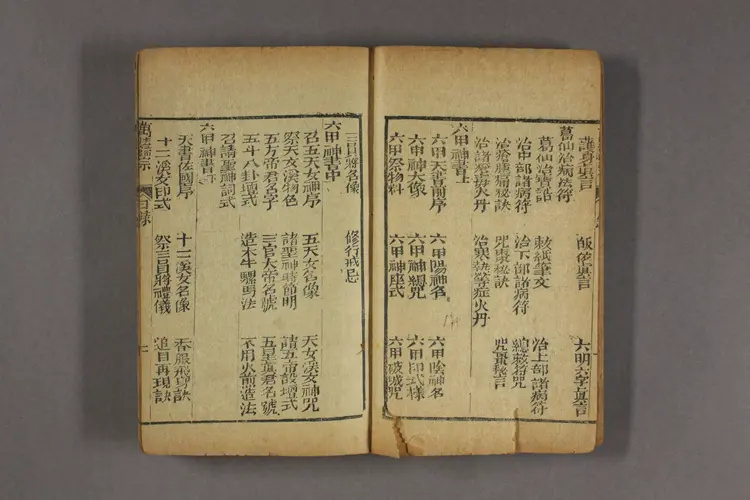 護身眞言 皈依眞言 六明六字眞言
葛仙治病法符
葛仙治寶誥 敕紙筆文 治上部諸病符
治中部諸病符 治下部諸病符 總敕符咒
治瘡腫痛秘訣 咒棗秘訣 咒棗密言
治諸瘧毒火丹 治寒熱等症火丹
六甲神書上
六甲天書前序 六甲陽神名 六甲陰神名
六甲神大像 六甲神總咒 六甲印式樣
六甲祭物料 六甲神座式 六甲破城咒
三目將名像 修行戒忌
六甲神書中
召五天女神序 五天女名像 天女溪女神咒
祭天女溪物色 諸聖神時節明 請五帝設壇式
五方帝君名字 三官大帝名號 五星眞君名號
五十八卦壇式 造木牛騾馬法 不用火煎造法
召請聖神詞式
六甲神書下
天書佐國序 十二溪女名像 吞服飛身訣
十二溪女印式 祭三目將禮儀 追目再現訣
目錄